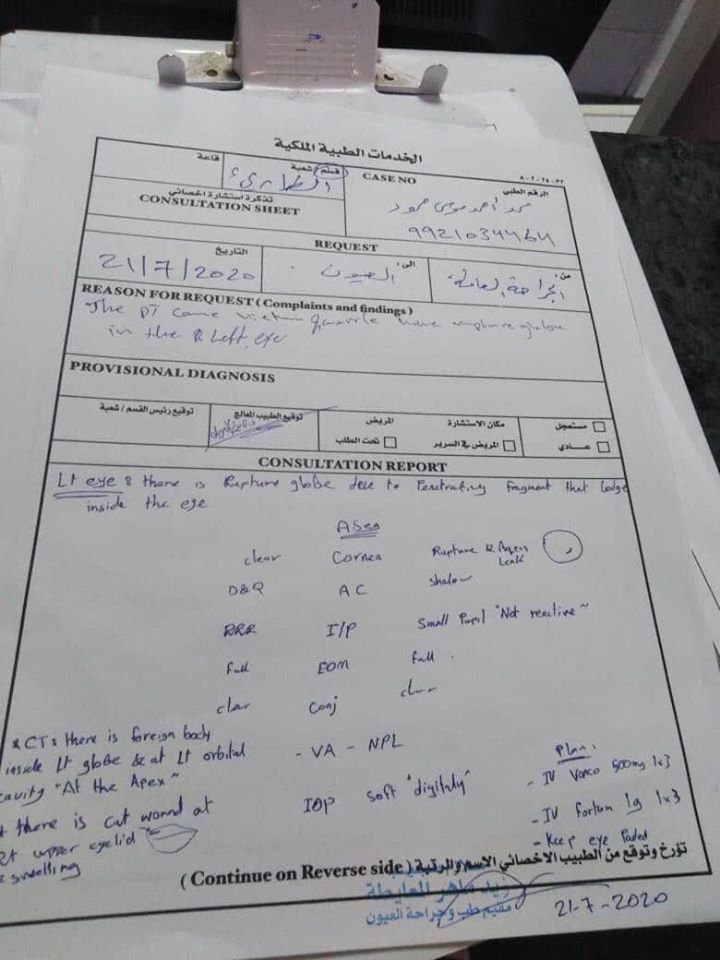 الخدمات الطبية الملكية
قاعة
قسم / شعبة
الطوارئ
CASE NO
الرقم الطبي
محمد أحمد موسى حمود
9921034464
تذكرة استشارة اخصائي
CONSULTATION SHEET
REQUEST
من:
الجراحة العامة
الى:
العيون
التاريخ
21/7/2020
REASON FOR REQUEST ( Complaints and findings )
The pt came victim have rupture globe
in the Left eye
PROVISIONAL DIAGNOSIS
مستعجل
عادي
مكان الاستشارة
المريض في السرير
المريض
تحت الطلب
توقيع الطبيب المعالج
توقيع رئيس القسم / شعبة
CONSULTATION REPORT
Lt eye : there is Rupture globe due to Penetrating fragment that lodge
inside the eye
clear Cornea Rupture & Aqeous Leak
D&Q AC shalow
RRR I/P Small Pupil "Not reactive"
full EOM full
clear Conj clear
* CT: there is foreign body
inside Lt globe & at Lt orbital
cavity "At the Apex"
there is cut wound at
upper eyelid
swelling
- VA - NPL
IOP soft "digitaly"
Plan:
- IV Vanco 500mg 1x3
- IV fortum 1g 1x3
- Keep eye Paded
( Continue on Reverse side ) تؤرخ وتوقع من الطبيب الاخصائي الاسم والرتبة
مقيم طب وجراحة العيون
21-7-2020